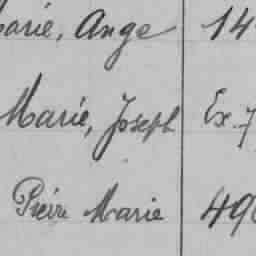 Marie, Ange 14
Marie, Joseph Ex. 7
Pierre Marie 490